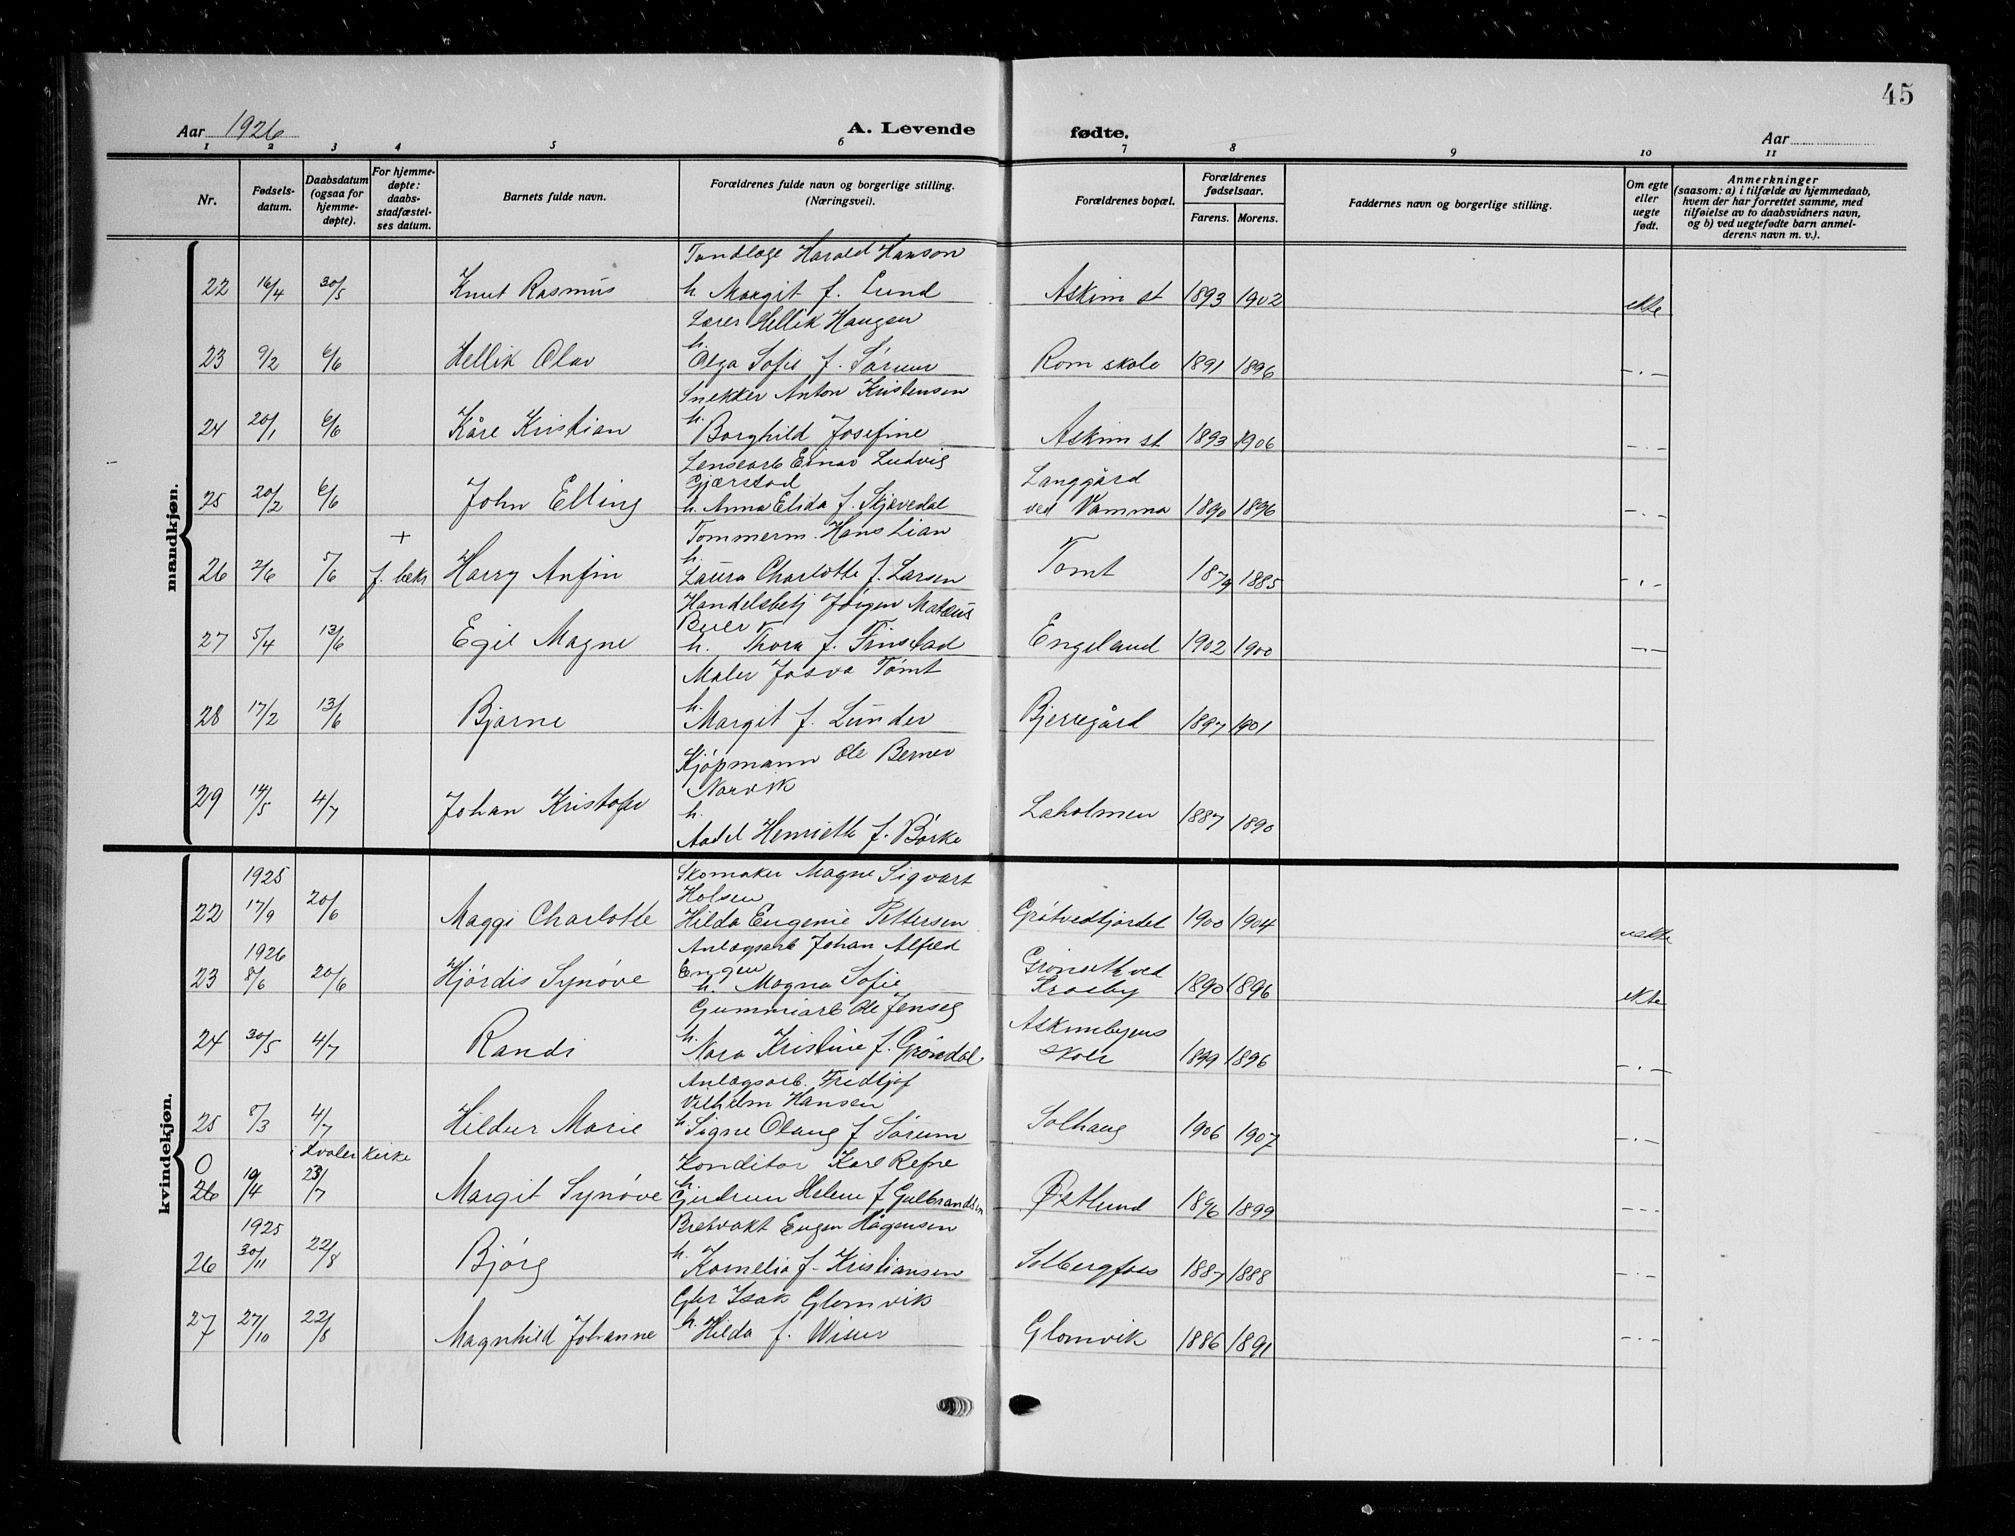 45
Aar 1926
A. Levende fødte.
Aar
1 2 3 4 5 6 7 8 9 10 11
Nr.
Fødsels-
datum.
Daabsdatum
(ogsaa for
hjemme-
døpte).
For hjemme-
døpte:
daabs-
stadfæstel-
ses datum.
Barnets fulde navn.
Forældrenes fulde navn og borgerlige stilling.
(Næringsvei).
Forældrenes bopæl.
Forældrenes
fødselsaar.
Farens. Morens.
Faddernes navn og borgerlige stilling.
Om egte
eller
uegte
født.
Anmerkninger
(saasom: a) i tilfælde av hjemmedaab,
hvem der har forrettet samme, med
tilføielse av to daabsvidners navn,
og b) ved uegtefødte barn anmel-
derens navn m. v.).
mandkjøn.
Tandlæge Harald Hanson
22 16/4 30/5 Knut Rasmus h. Margit f. Lund Askim st 1893 1902 ekte
Lærer Hellik Haugen
h.
23 9/2 6/6 Hellik Olav Olga Sofie f. Sørum Rom skole 1891 1896 -.-
Snekker Anton Kristensen
h.
24 20/1 6/6 Kåre Kristian Borghild Josefine Askim st 1893 1906 -.-
Lensearb Einar Ludvig
Gjærstad Langgård
25 20/2 6/6 John Elling h. Anna Elida f. Skjævedal ved Vamma 1890 1896 -.-
+ Tommerm. Hans Lian
h.
26 2/6 5/6 f. bekr Harry Anfin Laura Charlotte f. Larsen Tomt 1879 1885 -.-
Handelsbetj Jørgen Mateus
Buer
27 5/4 13/6 Egil Magne h. Thora f. Finstad Engeland 1902 1900 -.-
Maler Josva Tømt
h.
28 17/2 13/6 Bjarne Margit f. Lunder Bjerregård 1897 1901
Kjøpmann Ole Berner
Narvik
29 14/5 4/7 Johan Kristofer h. Laholmen 1887 1890
Aadel Henriette f. Børke
kvindekjøn.
1925 Skomaker Magne Sigvart
Holsen
22 17/9 20/6 Maggi Charlotte Hilda Eugenie Pettersen Grøtvedtjordet 1900 1904 uekte
1926 Anlægsarb Johan Alfred
Engen Grønseth ved
23 8/6 20/6 Hjørdis Synøve h. Magna Sofie Krosby 1890 1896 ekte
Gummiarb Ole Jenseg
h. Askimbyens
24 30/5 4/7 Randi Nora Kristine f. Grøndal skole 1899 1896 -.-
Anlægsarb. Fredtjof
Vilhelm Hansen
25 8/3 4/7 Hildur Marie h. Signe Olaug f Sørum Solhaug 1906 1907 -.-
i Hvaler kirke
0 Konditor Karl Refne
h.
26 10/4 23/7 Margit Synøve Gudrun Helene f Gulbrandsen Østlund 1896 1899 -.-
1925 Brevakt Eugen Hågensen
26 30/11 22/8 Bjørg h. Kornelia f. Kristiansen Solbergfoss 1887 1888 -.-
Gbr Isak Glomvik
27 27/10 22/8 Magnhild Johanne h. Hilda f. Wiker Glomvik 1886 1891 -.-